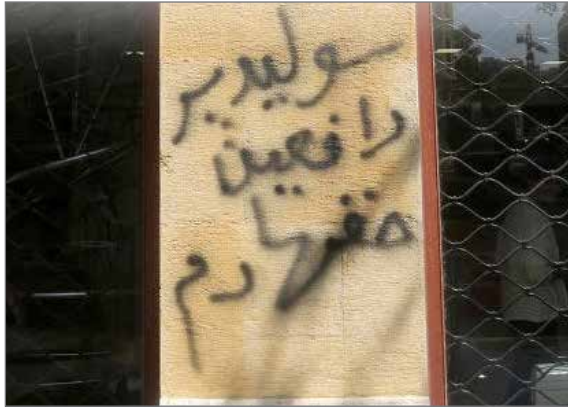 سوليدير
دافعين
حقها دم